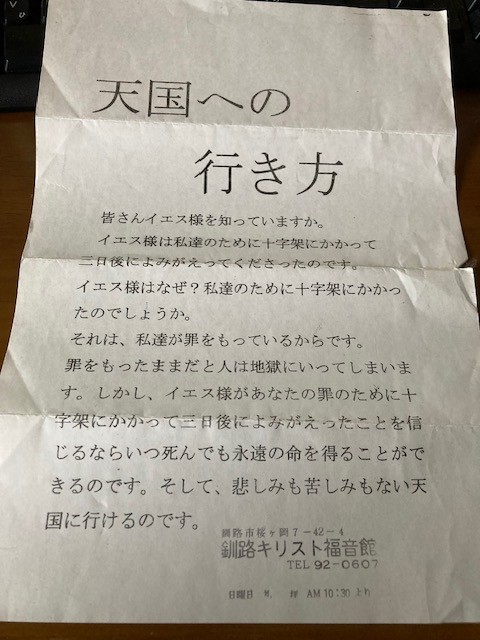 天国への
行き方
皆さんイエス様を知っていますか。
イエス様は私達のために十字架にかかって
三日後によみがえってくださったのです。
イエス様はなぜ?私達のために十字架にかかっ
たのでしょうか。
それは、私達が罪をもっているからです。
罪をもったままだと人は地獄にいってしまいま
す。しかし、イエス様があなたの罪のために十
字架にかかって三日後によみがえったことを信
じるならいつ死んでも永遠の命を得ることがで
きるのです。そして、悲しみも苦しみもない天
国に行けるのです。
釧路市桜ヶ岡7-42-4
釧路キリスト福音館
TEL 92-0607
日曜日 AM 10:30 より